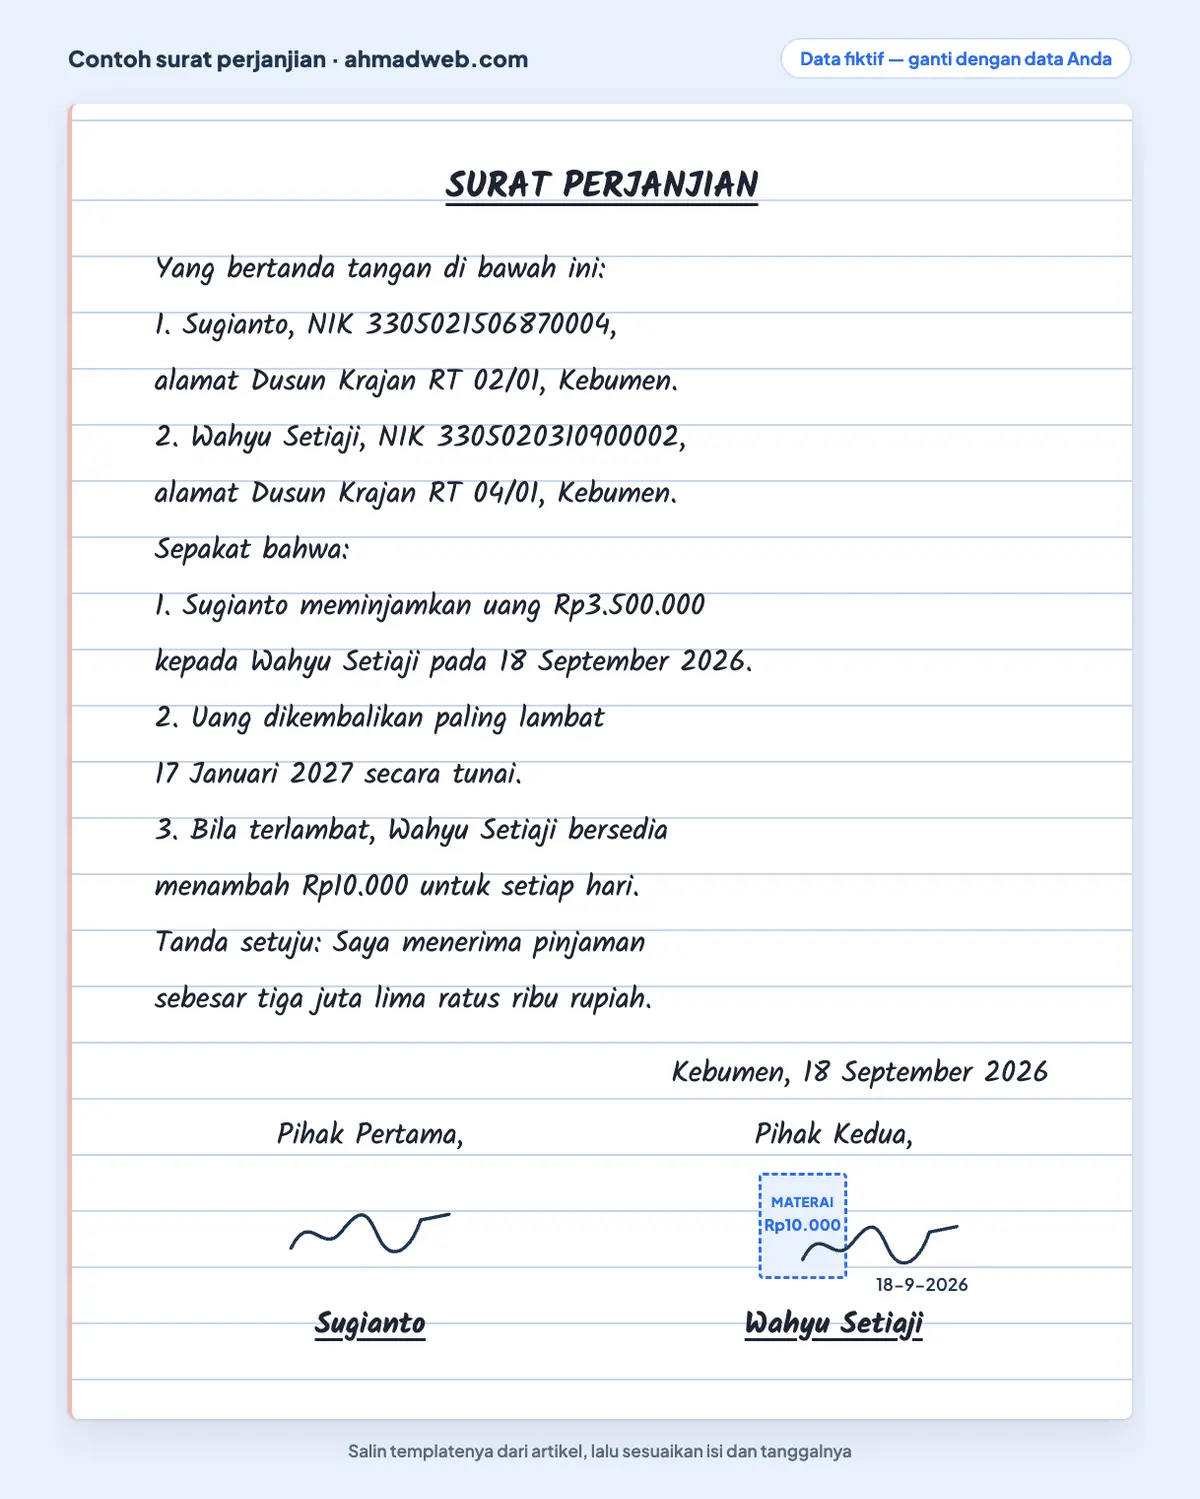 Contoh surat perjanjian · ahmadweb.com
Data fiktif — ganti dengan data Anda
SURAT PERJANJIAN
Yang bertanda tangan di bawah ini:
1. Sugianto, NIK 3305021506870004,
alamat Dusun Krajan RT 02/01, Kebumen.
2. Wahyu Setiaji, NIK 3305020310900002,
alamat Dusun Krajan RT 04/01, Kebumen.
Sepakat bahwa:
1. Sugianto meminjamkan uang Rp3.500.000
kepada Wahyu Setiaji pada 18 September 2026.
2. Uang dikembalikan paling lambat
17 Januari 2027 secara tunai.
3. Bila terlambat, Wahyu Setiaji bersedia
menambah Rp10.000 untuk setiap hari.
Tanda setuju: Saya menerima pinjaman
sebesar tiga juta lima ratus ribu rupiah.
Kebumen, 18 September 2026
Pihak Pertama,
Pihak Kedua,
MATERAI
Rp10.000
18-9-2026
Sugianto
Wahyu Setiaji
Salin templatenya dari artikel, lalu sesuaikan isi dan tanggalnya